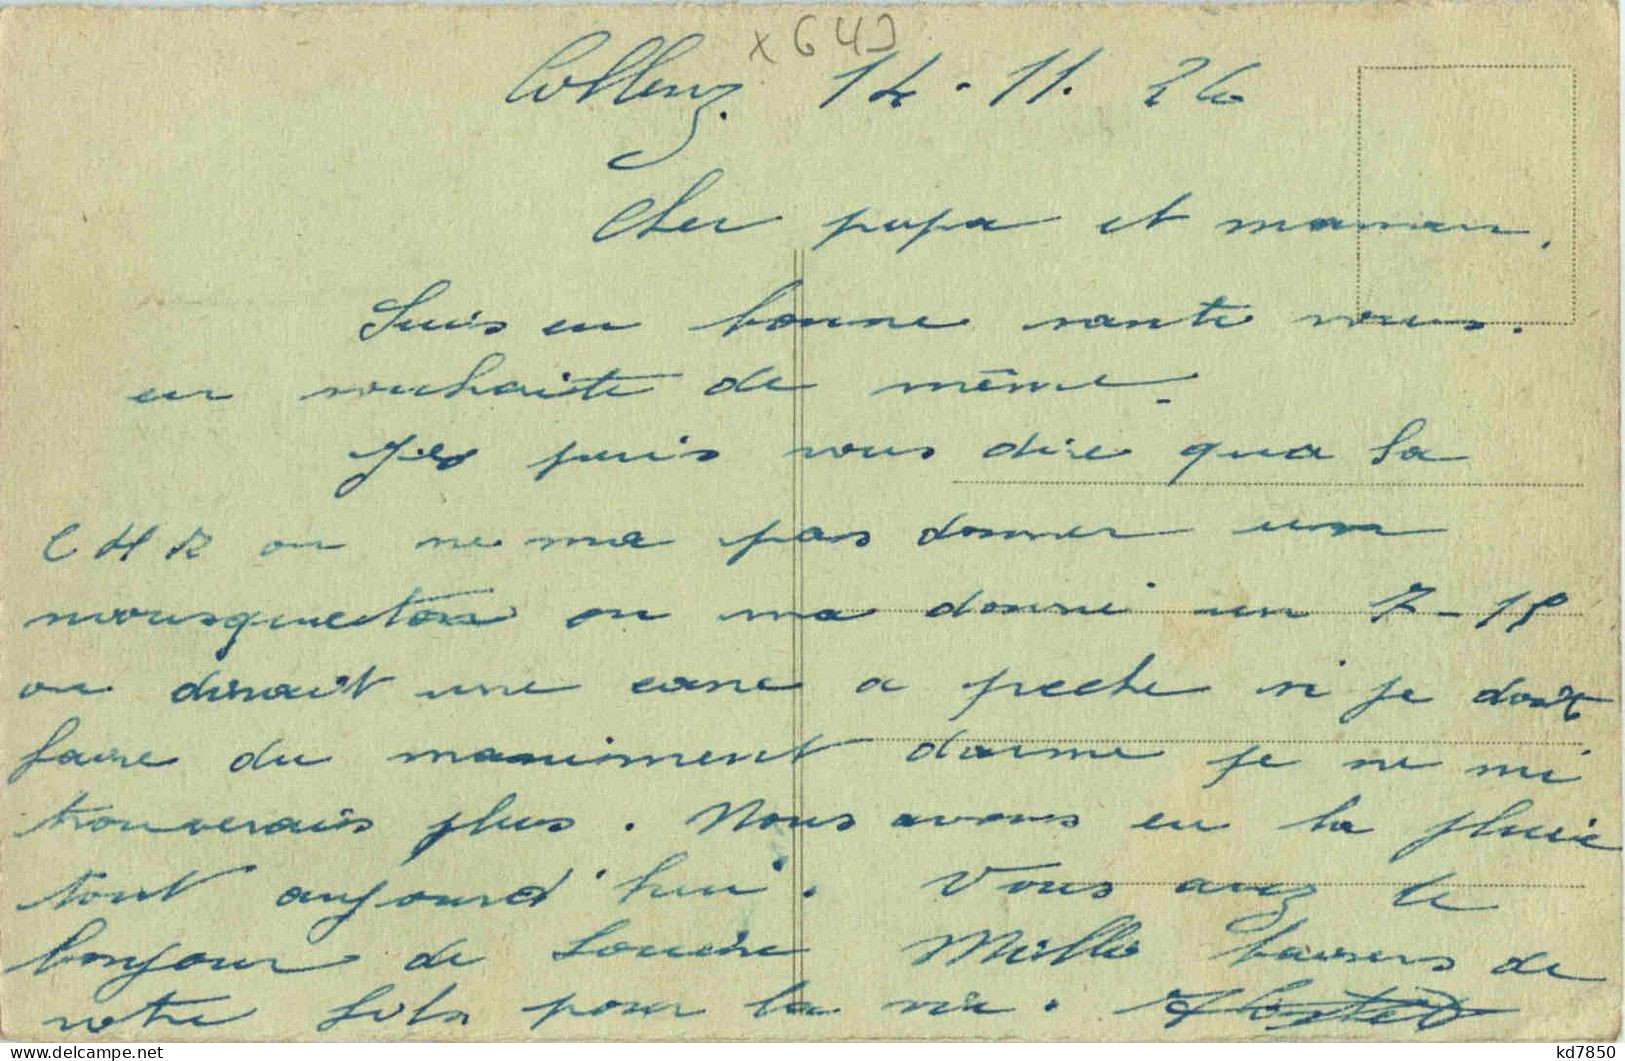 x 643
Coblenz. 14 - 11. 26
Cher papa et maman.
Suis en bonne sante vous.
en souhaite de même.
Je puis vous dire qua la
C H R on ne ma pas donner un
mousqueton on ma donné un 7 - 15
on dirait une cane a peche si je doit
faire du maniment darme je ne mi
trouverais plus. Nous avons eu la pluie
tout aujourd'hui. Vous avez le
bonjour de Mille baisers de
votre fils pour la vie.
kd7850